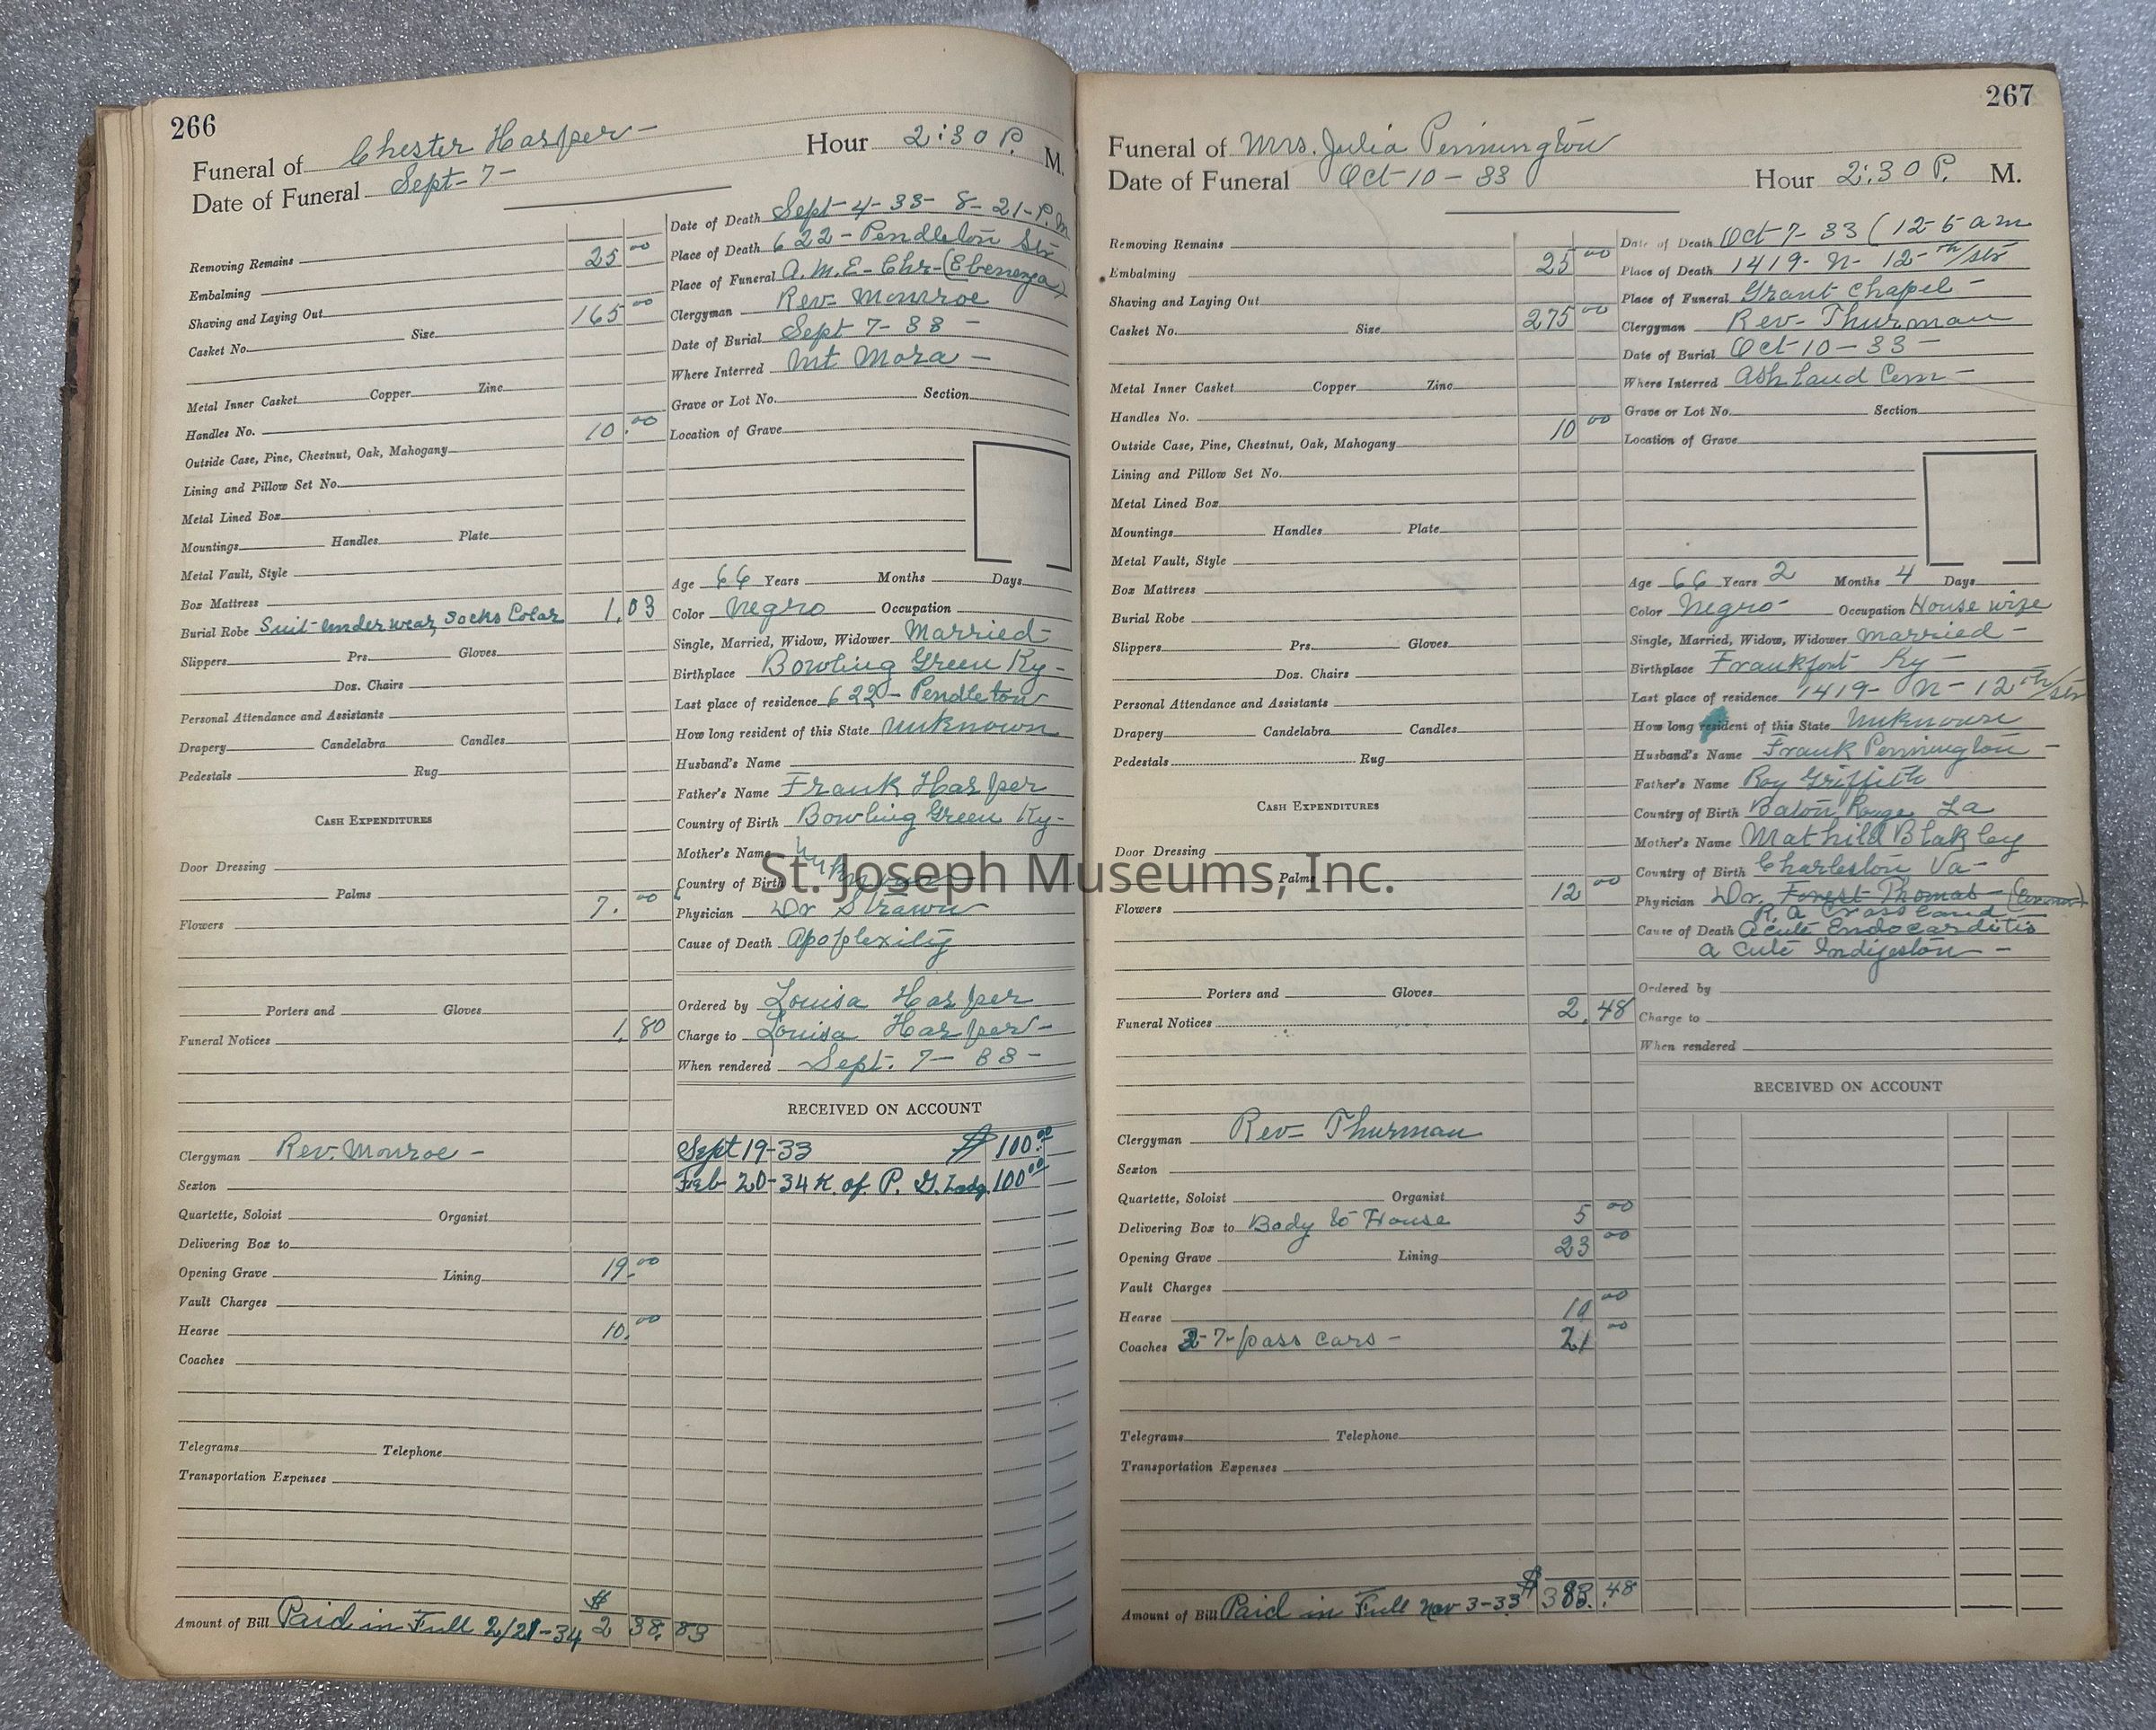 266
Funeral of Chester Harper Hour 2:30 P. M.
Date of Funeral Sept-7-
Removing Remains
Embalming 25 00
Shaving and Laying Out
Casket No. Size 165 00
Metal Inner Casket Copper Zinc
Handles No.
Outside Case, Pine, Chestnut, Oak, Mahogany 10.00
Lining and Pillow Set No.
Metal Lined Box
Mountings Handles Plate
Metal Vault, Style
Box Mattress
Burial Robe Suit-underwear, Socks Colar 1.03
Slippers Prs. Gloves
Doz. Chairs
Personal Attendance and Assistants
Drapery Candelabra Candles
Pedestals Rug
CASH EXPENDITURES
Door Dressing
Palms
Flowers 7.00
Porters and Gloves
Funeral Notices 1.80
Clergyman Rev. Monroe -
Sexton
Quartette, Soloist Organist
Delivering Box to
Opening Grave Lining 19.00
Vault Charges
Hearse 10.00
Coaches
Telegrams Telephone
Transportation Expenses
Amount of Bill Paid in Full 2/21-34 $ 238.83
Date of Death Sept-4-33- 8-21-P.M
Place of Death 622-Pendleton Str
Place of Funeral A.M.E-Chr-(Ebenenza)
Clergyman Rev- Monroe
Date of Burial Sept 7-33 -
Where Interred Mt Mora -
Grave or Lot No. Section
Location of Grave
Age 66 Years Months Days
Color Negro Occupation
Single, Married, Widow, Widower Married-
Birthplace Bowling Green Ky-
Last place of residence 622- Pendleton
How long resident of this State Unknown
Husband's Name
Father's Name Frank Harper
Country of Birth Bowling Green Ky-
Mother's Name Unknown
Country of Birth
Physician Dr Strawn
Cause of Death Apoplexitiy
Ordered by Louisa Harper
Charge to Louisa Harper-
When rendered Sept. 7- 33-
RECEIVED ON ACCOUNT
Sept 19-33 $ 100.00
Feb 20-34 K. of P. G. Lodg. 100.00
267
Funeral of Mrs. Julia Pennington
Date of Funeral Oct-10-33 Hour 2:30 P. M.
Removing Remains
Embalming 25 00
Shaving and Laying Out
Casket No. Size 275 00
Metal Inner Casket Copper Zinc
Handles No.
Outside Case, Pine, Chestnut, Oak, Mahogany 10 00
Lining and Pillow Set No.
Metal Lined Box
Mountings Handles Plate
Metal Vault, Style
Box Mattress
Burial Robe
Slippers Prs. Gloves
Doz. Chairs
Personal Attendance and Assistants
Drapery Candelabra Candles
Pedestals Rug
CASH EXPENDITURES
Door Dressing
Palms
Flowers 12 00
Porters and Gloves
Funeral Notices 2.48
Clergyman Rev- Thurman
Sexton
Quartette, Soloist Organist
Delivering Box to Body to House 5 00
Opening Grave Lining 23 00
Vault Charges
Hearse 10 00
Coaches 3-7-pass cars- 21 00
Telegrams Telephone
Transportation Expenses
Amount of Bill Paid in Full Nov 3-33 $ 383.48
Date of Death Oct-7-33 (12-5 am
Place of Death 1419- N- 12-th/str
Place of Funeral Grant Chapel-
Clergyman Rev- Thurman
Date of Burial Oct-10-33-
Where Interred Ashland Cem-
Grave or Lot No. Section
Location of Grave
Age 66 Years 2 Months 4 Days
Color Negro- Occupation House wife
Single, Married, Widow, Widower Married-
Birthplace Frankfort Ky-
Last place of residence 1419- N- 12th/str
How long resident of this State Unknown
Husband's Name Frank Pennington-
Father's Name Roy Griffith
Country of Birth Baton Rouge, La
Mother's Name Mathild Blakley
Country of Birth Charleston Va-
Physician Dr. Forest Thomas- (Coroner)
R. A Crossland
Cause of Death Acute Endocarditis
acute Indigeston-
Ordered by
Charge to
When rendered
RECEIVED ON ACCOUNT
St. Joseph Museums, Inc.